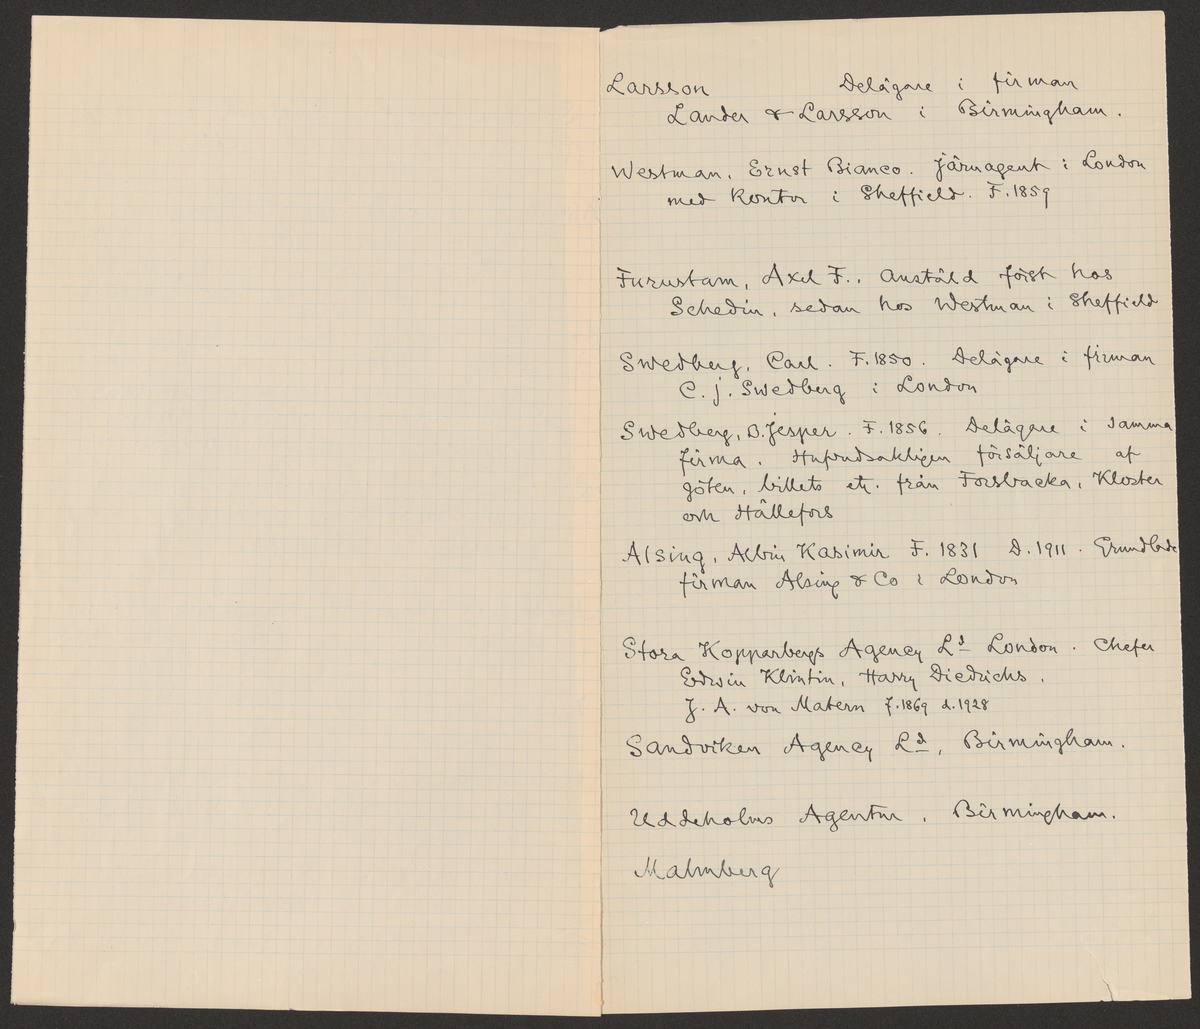 Larsson Delägare i firman
Lander & Larsson i Birmingham.
Westman, Ernst Bianco. Järnagent i London
med kontor i Sheffield. F.1859
Furustam, Axel F., anstäld först hos
Schedin, sedan hos Westman i Sheffield
Swedberg, Carl. F.1850. Delägare i firman
C. J. Swedberg i London
Swedberg, B. Jesper. F.1856. Delägare i samma
firma. Hufvudsakligen försäljare af
göten, billets etc. från Forsbacka, Kloster
och Hällefors
Alsing, Albin Kasimir F. 1831 D. 1911. Grundlade
firman Alsing & Co i London
Stora Kopparbergs Agency Ld London. Chefer
Edwin Klintin, Harry Diedrichs.
J. A. von Matern f.1869 d.1928
Sandviken Agency Ld, Birmingham.
Uddeholms Agentur, Birmingham.
Malmberg